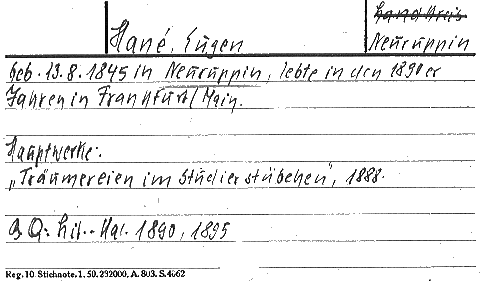 Hané, Eugen
Landkreis
Neuruppin
Geb. 13.8.1845 in Neuruppin, lebte in den 1890er
Jahren in Frankfurt/Main.
Hauptwerke:
„Träumereien im Studierstübchen", 1888.
B Q: Lit.-Kal. 1890, 1895
Reg. 10 Stichnote. 1. 50. 232000, A. 803. S. 4662